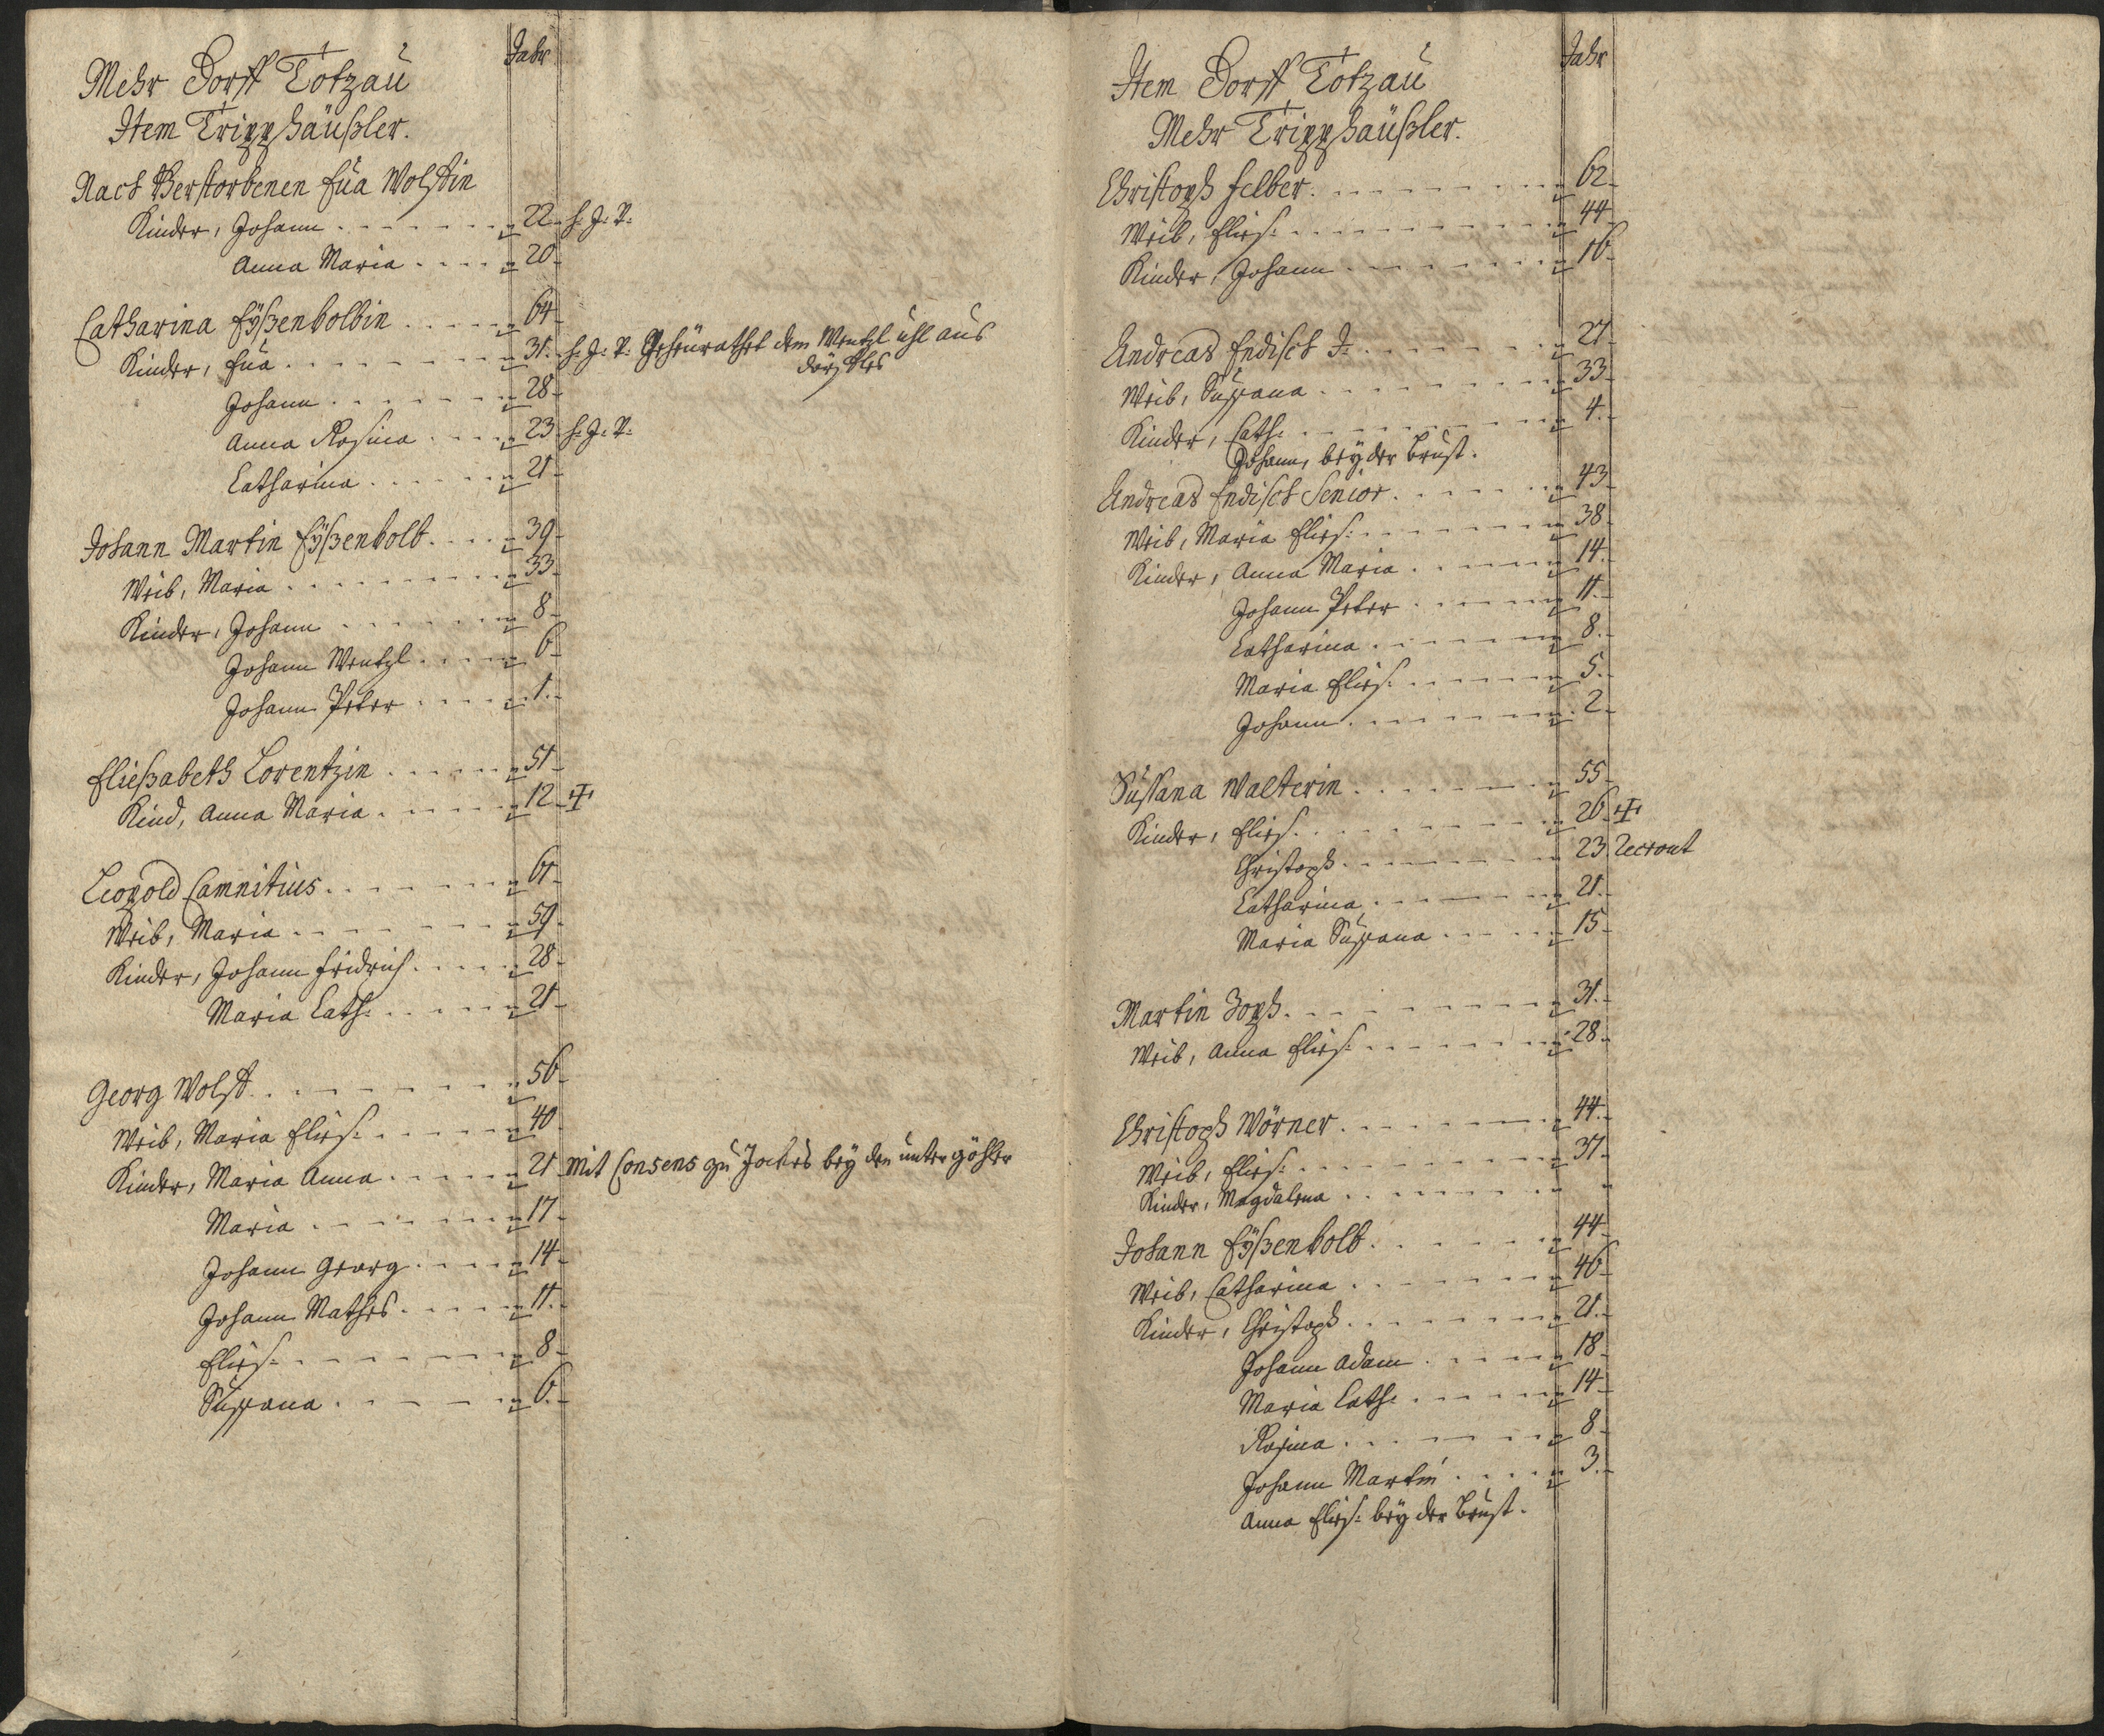 Jahr
Mehr Dorff Totzau
Item Tripphäußler.
Nach Verstorbenen Eua Wolffin
Kinder, Johann 22 h. J. V.
Anna Maria 20
Catharina Eÿßenkolbin 64
Kinder, Eua 31. h. J. V. Geheürathet dem Wentzl Uhl aus
Johann 28
Anna Rosina 23 h. J. V.
Catharina 21
Johann Martin Eÿßenkolb 39
Weib, Maria 33
Kinder, Johann 8
Johann Wentzl 6
Johann Peter 1.
Eließabeth Lorentzin 51
Kind, Anna Maria 12 ‡
Leopold Camnitius 61
Weib, Maria 59
Kinder, Johann Fridrich 28
Maria Cath: 21
Georg Wolff 56
Weib, Maria Elies: 40
Kinder, Maria Anna 21 Mit Consens zu Jockes beÿ den untergöhler
Maria 17
Johann Georg 14
Johann Mathes 11.
Elies: 8
Sußana 6.
Jahr
Item Dorff Totzau
Mehr Tripphäußler.
Christoph Felber 62
Weib, Elies: 44
Kinder, Johann 16
Andreas Endisch J: 27
Weib, Sußana 33
Kinder, Cath: 4.
Johann, beÿ der Brust.
Andreas Endisch Senior 43
Weib, Maria Elies: 38
Kinder, Anna Maria 14
Johann Peter 11.
Catharina 8.
Maria Elies: 5.
Johann 2
Sußana Walterin 55
Kinder, Elies: 26 ‡
Christoph 23. Recrout
Catharina 21.
Maria Sußana 15
Martin Zoph 31.
Weib, Anna Elies: 28
Christoph Wörner 44.
Weib, Elies: 37
Kinder, Magdalena
Johann Eÿßenkolb 44
Weib, Catharina 46
Kinder, Christoph 21.
Johann Adam 18
Maria Cath: 14
Rosina 8
Johann Martin 3.
Anna Elies: beÿ der Brust.